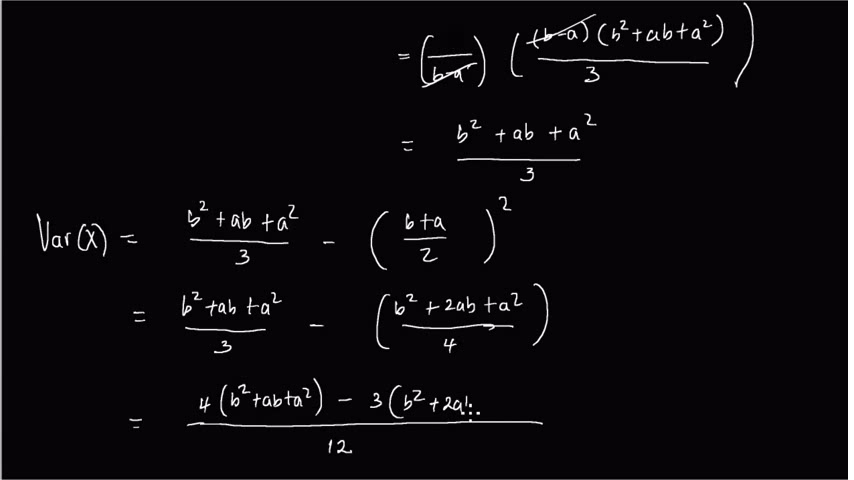 = (1/(b-a)) ((b-a)(b²+ab+a²)/3)
= (b² + ab + a²)/3
Var(X) = (b²+ab+a²)/3 - ((b+a)/2)²
= (b²+ab+a²)/3 - ((b²+2ab+a²)/4)
= (4(b²+ab+a²) - 3(b²+2a
12